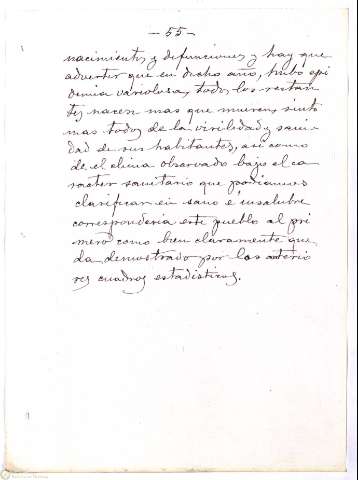 — 55 —
nacimientos y defunciones y hay que
advertir que en dicho año, hubo epi
demia variolosa, todos los restan
tes nacen mas que mueren, sínto
mas todos de la virilidad y sani-
dad de sus habitantes, así como
de el clima observado bajo el ca
racter sanitario que podíamos
clarificar en sano é insalubre
correspondería este pueblo al pri
mero como bien claramente que-
da demostrado por los anterio
res cuadros estadísticos.